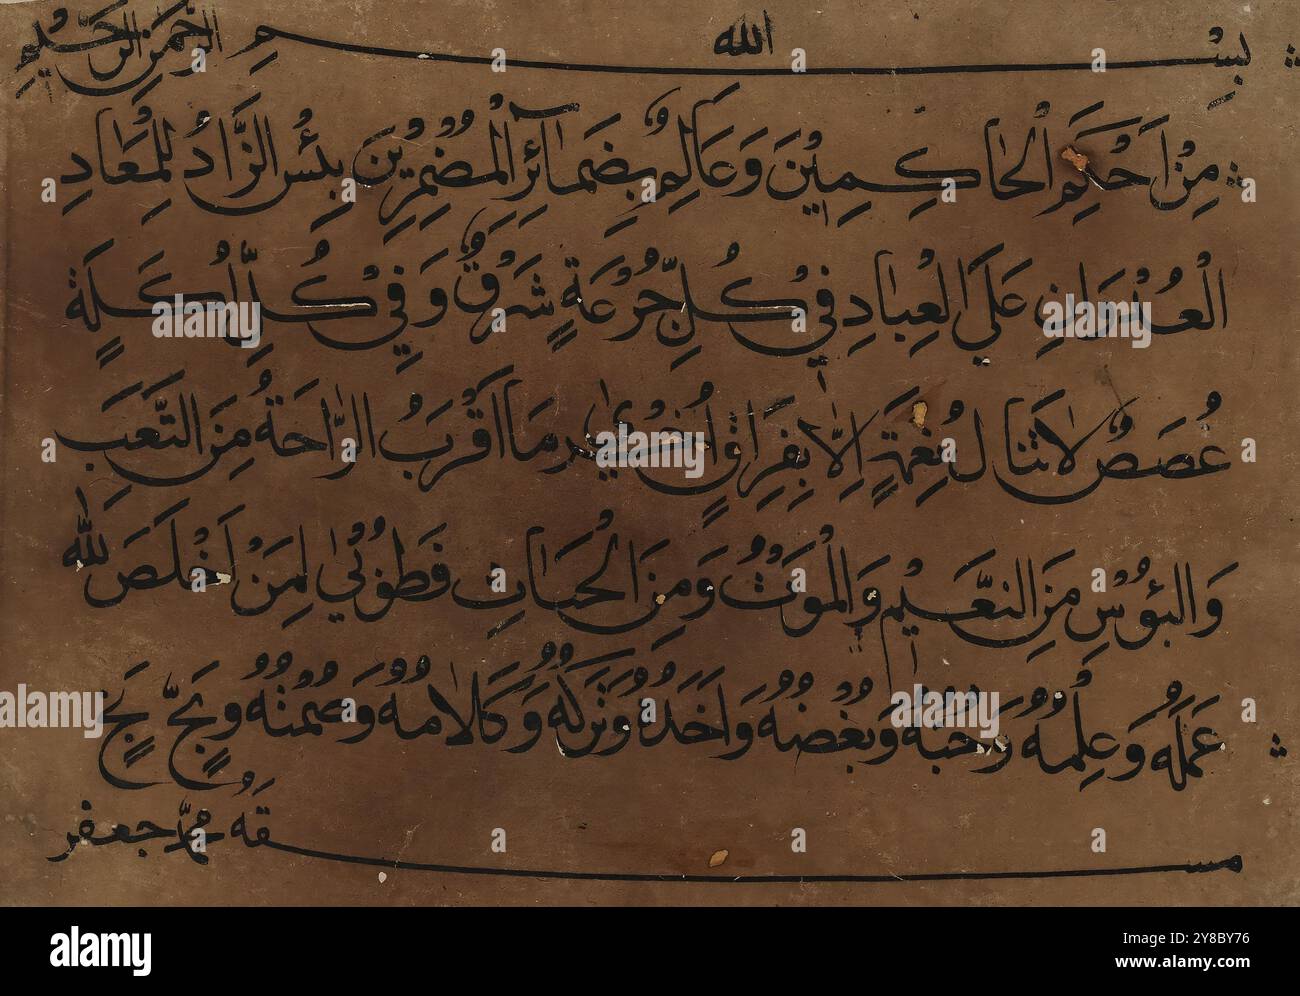 بِسْمِ اللّٰه الرَّحْمٰنِ الرَّحِيْمِ
مِنْ اَحْكَمِ الْحَاكِمِيْنَ وَعَالِمٍ بِضَمَآئِرِ الْمُضْمِرِيْنَ بِئْسَ الزَّادُ لِلْمَعَادِ
الْعُدْوَانِ عَلَى الْعِبَادِ فِيْ كُلِّ جُرْعَةٍ شَرْقٌ وَفِيْ كُلِّ اُكْلَةٍ
غُصَصٌ لَا تَنَالُ نِعْمَةٍ اِلَّا بِفِرَاقٍ اُخْرٰى مَا اَقْرَبُ الرَّاحَةُ مِنَ التَّعَبِ
وَالْبُؤْسِ مِنَ النَّعِيْمِ وَالْمَوْتُ وَمِنَ الْحَيَاتِ فَطُوْبٰى لِمَنْ اَخْلَصَ لِلّٰه
عَمَلُهُ وَعِلْمُهُ وَحُبُّهُ وَبُغْضُهُ وَاَخَذَهُ وَتَرْكُهُ وَكَلَامُهُ وَصُمْتُهُ وَبَخٍّ بَخٍ
مشقه محمّد جعفر
alamy
Image ID: 2Y8BY76
www.alamy.com